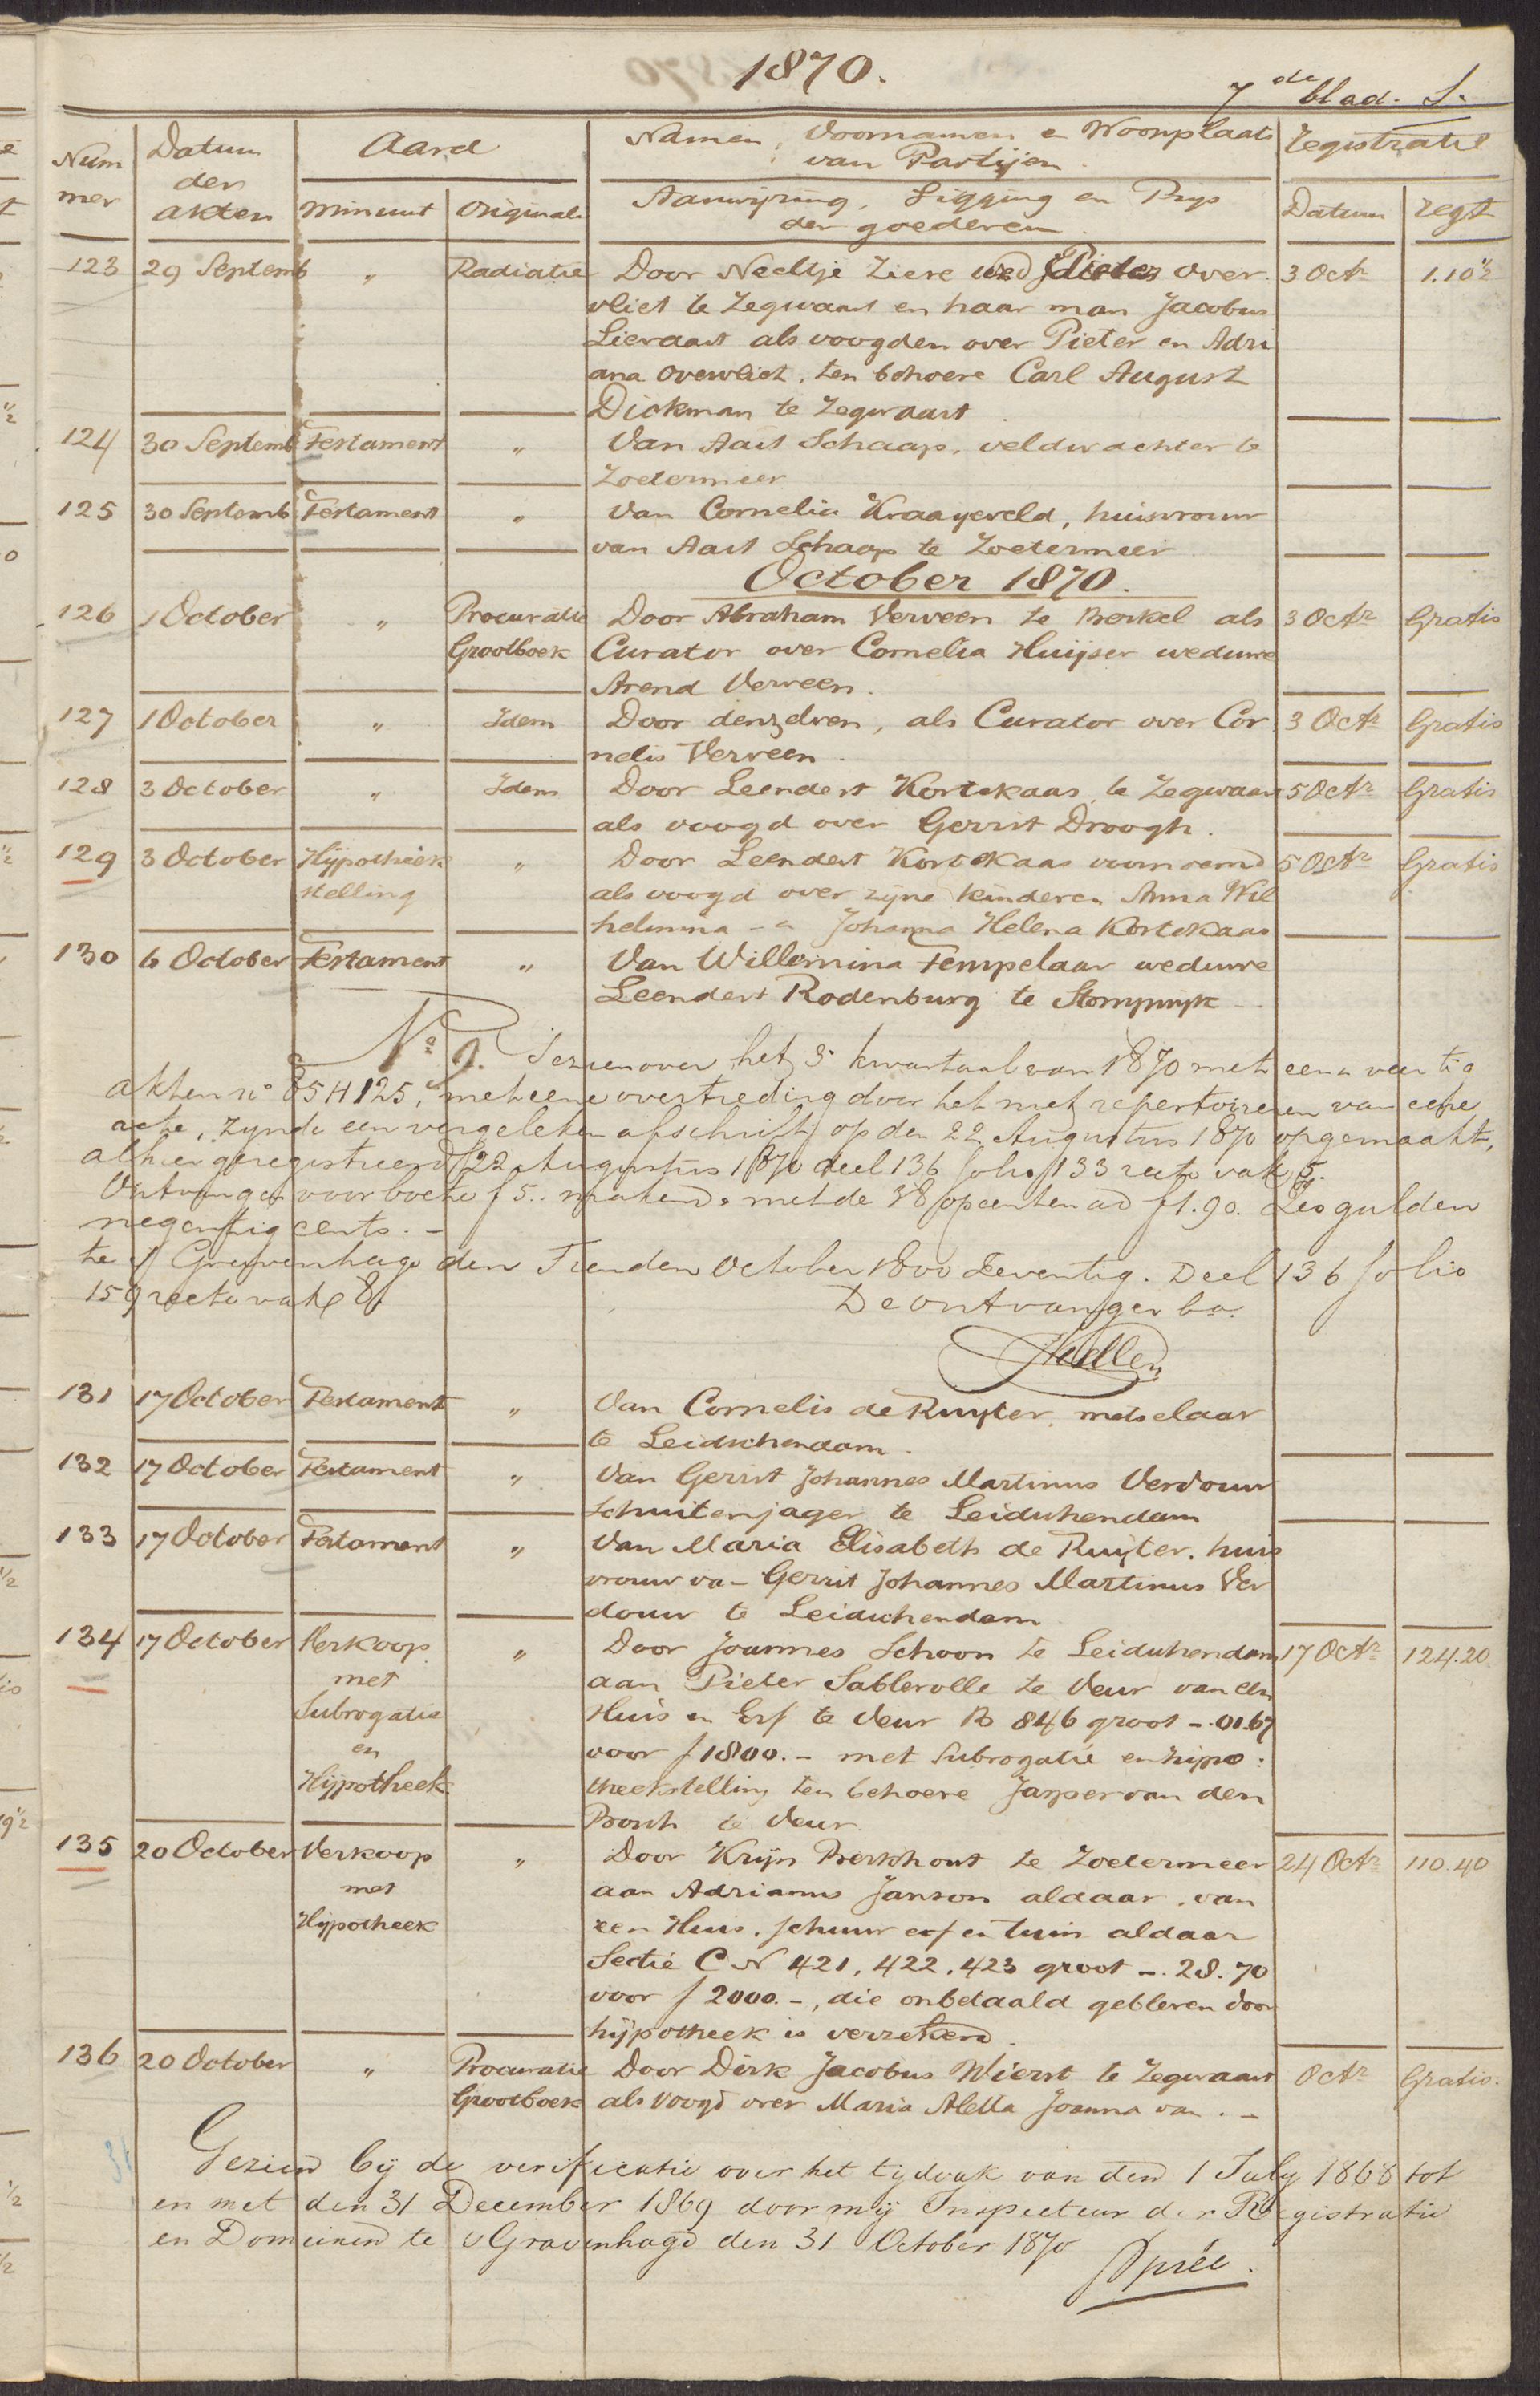 1870.
7 de blad. S.
Nummer Datum der akten Aard Namen, Voornamen en Woonplaats van Partijen. Registratie
Minuut Originali Aanwijzing, Ligging en Prijs der goederen. Datum regt
123 29 Septemb " Radiatie Door Neeltje Ziere wed Pieter Over 3 Octr 1.10½
vliet te Zegwaart en haar man Jacobus
Lieraart als voogden over Pieter en Adri
ana Overvliet, ten behoeve Carl August
Dickman te Zegwaart
124 30 Septemb Testament " Van Aart Schaap, veldwachter te
Zoetermeer
125 30 Septemb Testament " Van Cornelia Kraayeveld, huisvrouw
van Aart Schaap te Zoetermeer
October 1870.
126 1 October " Procuratie Door Abraham Verveen te Berkel als 3 Octr Gratis
Grootboek Curator over Cornelia Huijser weduwe
Arend Verveen.
127 1 October " Idem Door denzelven, als Curator over Cor 3 Octr Gratis
nelis Verveen.
128 3 October " Idem Door Leendert Kortekaas, te Zegwaart 5 Octr Gratis
als voogd over Gerrit Droogh.
129 3 October Hijpotheek " Door Leendert Kortekaas voornoemd 5 Octr Gratis
stelling als voogd over zijne kinderen Anna Wil
helmina en Johanna Helena Kortekaas
130 6 October Testament " Van Willemina Tempelaar weduwe
Leendert Rodenburg te Stompwijk
No 9. Gezien over het 3e kwartaal van 1870 met een en veertig
akten no 85 tt 125, met eene overtreding door het niet repertoireren van eene
acte, zynde een vergeleken afschrift op den 22 Augustus 1870 opgemaakt,
alhier geregistreerd 22 Augustus 1870 deel 136 folio 133 recto vak 5.
Ontvangen voor boete f 5.. makende met de 38 opcenten ad f 1.90. Zes gulden
negentig cents. -
te s Gravenhage den Tienden October 1800 Zeventig. Deel 136 folio
159 recto vak 8
De ontvanger ba.
131 17 October Testament " Van Cornelis de Ruyter, metselaar
te Leidschendam.
132 17 October Testament " Van Gerrit Johannes Martinus Verdouw
schuitenjager te Leidschendam
133 17 October Testament " Van Maria Elisabeth de Ruijter, huis
vrouw van Gerrit Johannes Martinus Ver
douw te Leidschendam
134 17 October Verkoop " Door Joannes Schoon te Leidschendam 17 Octr 124.20
met aan Pieter Sablerolle te Veur van een
Subrogatie Huis en Erf te Veur B 846 groot -.01.67
en voor f 1800.- met Subrogatie en hijpo:
Hijpotheek theekstelling ten behoeve Jasper van den
Bosch te Veur.
135 20 October Verkoop " Door Krijn Berkhout te Zoetermeer 24 Octr 110.40
met aan Adrianus Janson aldaar, van
Hijpotheek een Huis, schuur erf en tuin aldaar
Sectie C N 421, 422, 423 groot -. 28. 70
voor f 2000.-, die onbetaald gebleven door
hijpotheek is verzekerd.
136 20 October " Procuratie Door Dirk Jacobus Wierst te Zegwaart Octr Gratis.
Grootboek als Voogd over Maria Aletta Joanna van . -
Gezien bij de verificatie over het tijdvak van den 1 July 1868 tot
en met den 31 December 1869 door mij Inspecteur der Registratie
en Domeinen te s Gravenhage den 31 October 1870